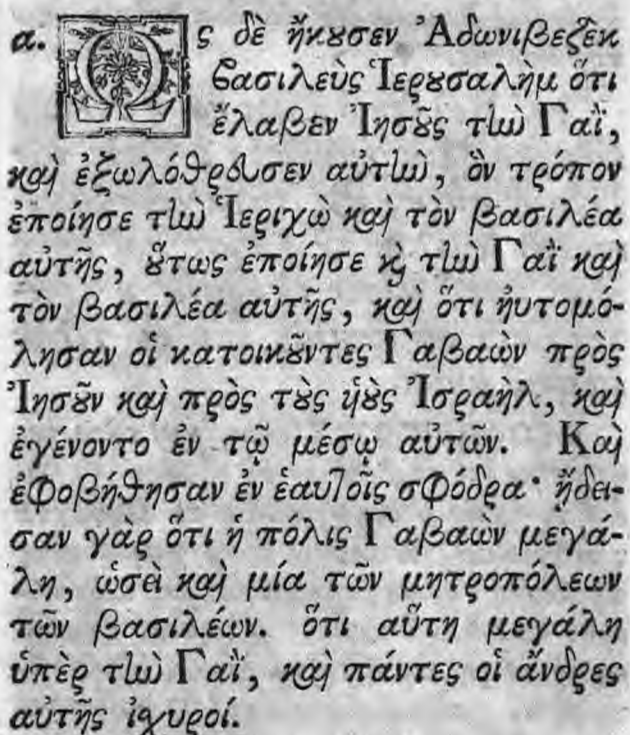 α. Ὡς δὲ ἤκουσεν Ἀδωνιβεζὲκ
βασιλεὺς Ἱερουσαλὴμ ὅτι
ἔλαβεν Ἰησοῦς τὴν Γαῒ,
καὶ ἐξωλόθρευσεν αὐτὴν, ὃν τρόπον
ἐποίησε τὴν Ἱεριχὼ καὶ τὸν βασιλέα
αὐτῆς, οὕτως ἐποίησε καὶ τὴν Γαῒ καὶ
τὸν βασιλέα αὐτῆς, καὶ ὅτι ηὐτομό-
λησαν οἱ κατοικοῦντες Γαβαὼν πρὸς
Ἰησοῦν καὶ πρὸς τοὺς υἱοὺς Ἰσραὴλ, καὶ
ἐγένοντο ἐν τῷ μέσῳ αὐτῶν. Καὶ
ἐφοβήθησαν ἐν ἑαυτοῖς σφόδρα· ᾔδει-
σαν γὰρ ὅτι ἡ πόλις Γαβαὼν μεγά-
λη, ὡσεὶ καὶ μία τῶν μητροπόλεων
τῶν βασιλέων. ὅτι αὕτη μεγάλη
ὑπὲρ τὴν Γαῒ, καὶ πάντες οἱ ἄνδρες
αὐτῆς ἰχυροί.